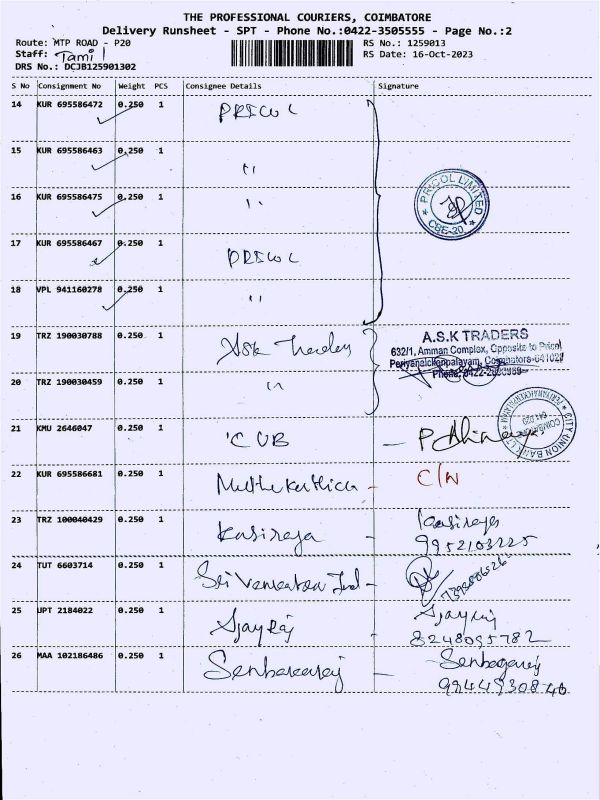 THE PROFESSIONAL COURIERS, COIMBATORE
Delivery Runsheet - SPT - Phone No.:0422-3505555 - Page No.:2
Route: MTP ROAD - P20 RS No.: 1259013
Staff: Tamil RS Date: 16-Oct-2023
DRS No.: DCJB125901302
S No Consignment No Weight PCS Consignee Details Signature
14 KUR 695586472 0.250 1 PRICOL
15 KUR 695586463 0.250 1 "
16 KUR 695586475 0.250 1 "
PRICOL LIMITED CBE-20
17 KUR 695586467 0.250 1 PRICOL
18 VPL 941160278 0.250 1 "
19 TRZ 190030788 0.250 1 Ask Traders
A.S.K TRADERS
632/1, Amman Complex, Opposite to Pricol
Periyanaickenpalayam, Coimbatore-641020
20 TRZ 190030459 0.250 1 "
21 KMU 2646047 0.250 1 CUB -
CITY UNION BANK LTD
22 KUR 695586681 0.250 1 Muthukarthica - C/W
23 TRZ 100040429 0.250 1 Kasiraja Kasiraja
9952103225
24 TUT 6603714 0.250 1 Sri Venkatesa Ind -
25 UPT 2184022 0.250 1 Ajayraj - Ajayraj
8248095782
26 MAA 102186486 0.250 1 Senbagaraj - Senbagaraj
9944930840